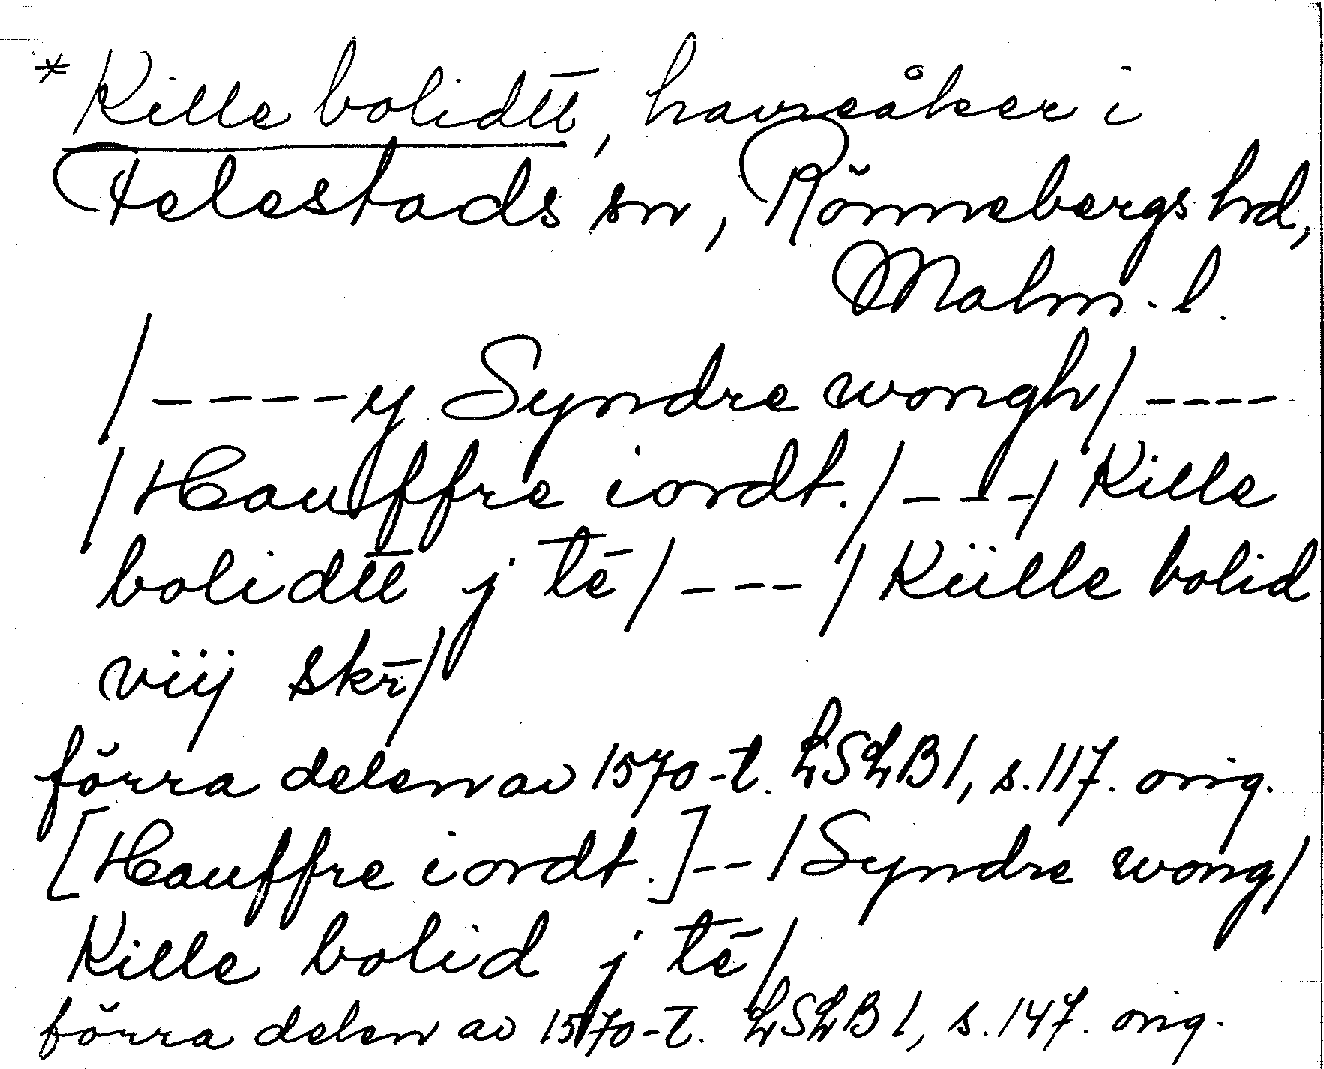 * Kille bolidtt̄, havreåker i
Felestads sn, Rönnebergs hd,
Malm. l.
/----y Syndre wongh/----
/Hauffre iordt./---/ Kille
bolidtt̄ j tē/---/ Kiille bolid
viij skr̄/
förra delen av 1570-t. LSLB1, s.117. orig.
[Hauffre iordt.]--/Syndre wong/
Kille bolid j tē/
förra delen av 1570-t. LSLB1, s.147. orig.